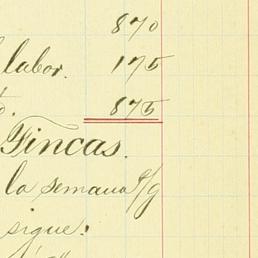 870
labor. 175
875
Fincas.
la semana s/g
sigue: